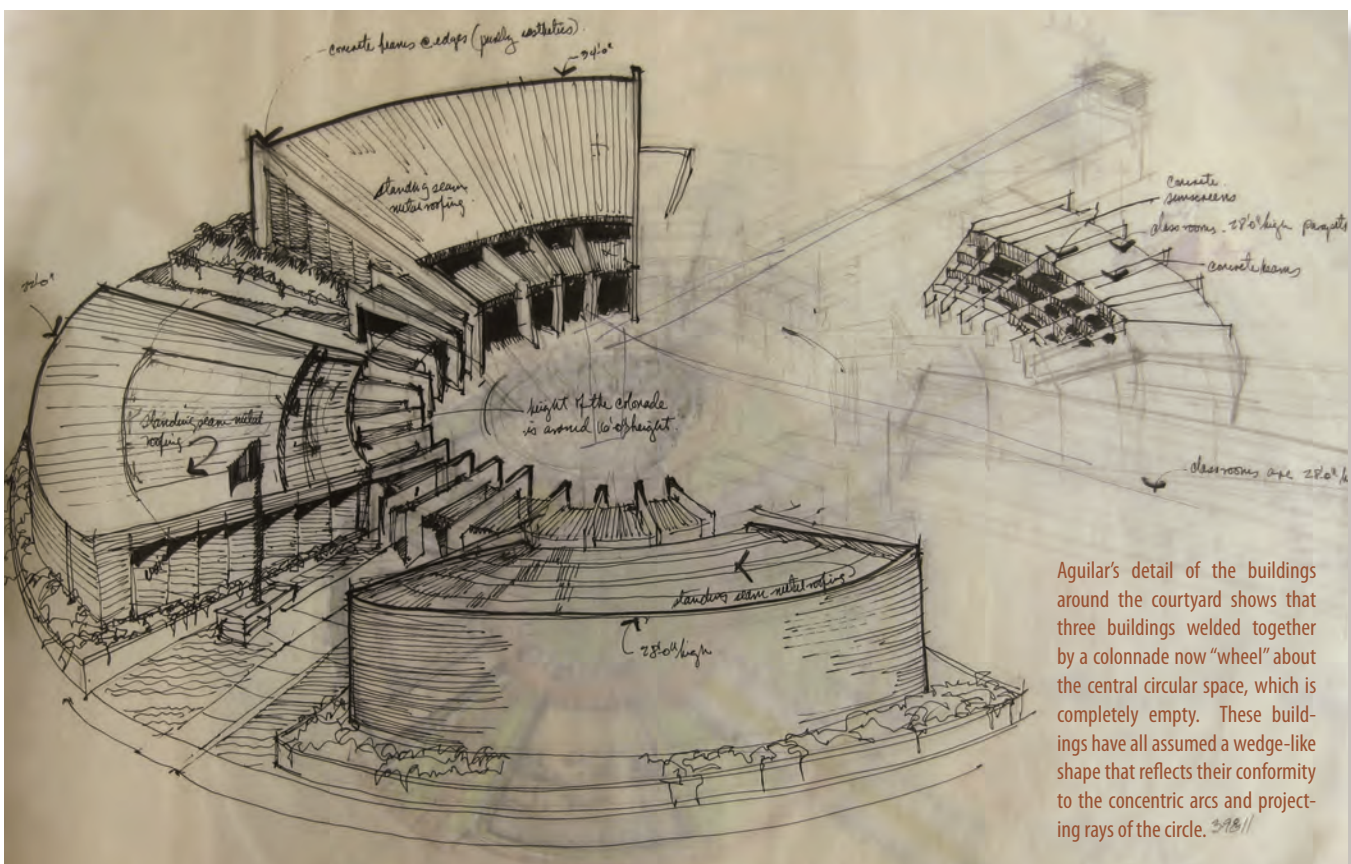 concrete beams @ edges (purely aesthetics).
34'0"
standing seam
metal roofing.
concrete
sunscreens
classrooms - 28'0" high parapets
concrete beams
height of the colonade
is around 16'0" height.
standing seam metal
roofing
classrooms are 28'0"/h
standing seam metal roofing
28'0"/high
Aguilar's detail of the buildings
around the courtyard shows that
three buildings welded together
by a colonnade now “wheel” about
the central circular space, which is
completely empty. These build-
ings have all assumed a wedge-like
shape that reflects their conformity
to the concentric arcs and project-
ing rays of the circle. 39811